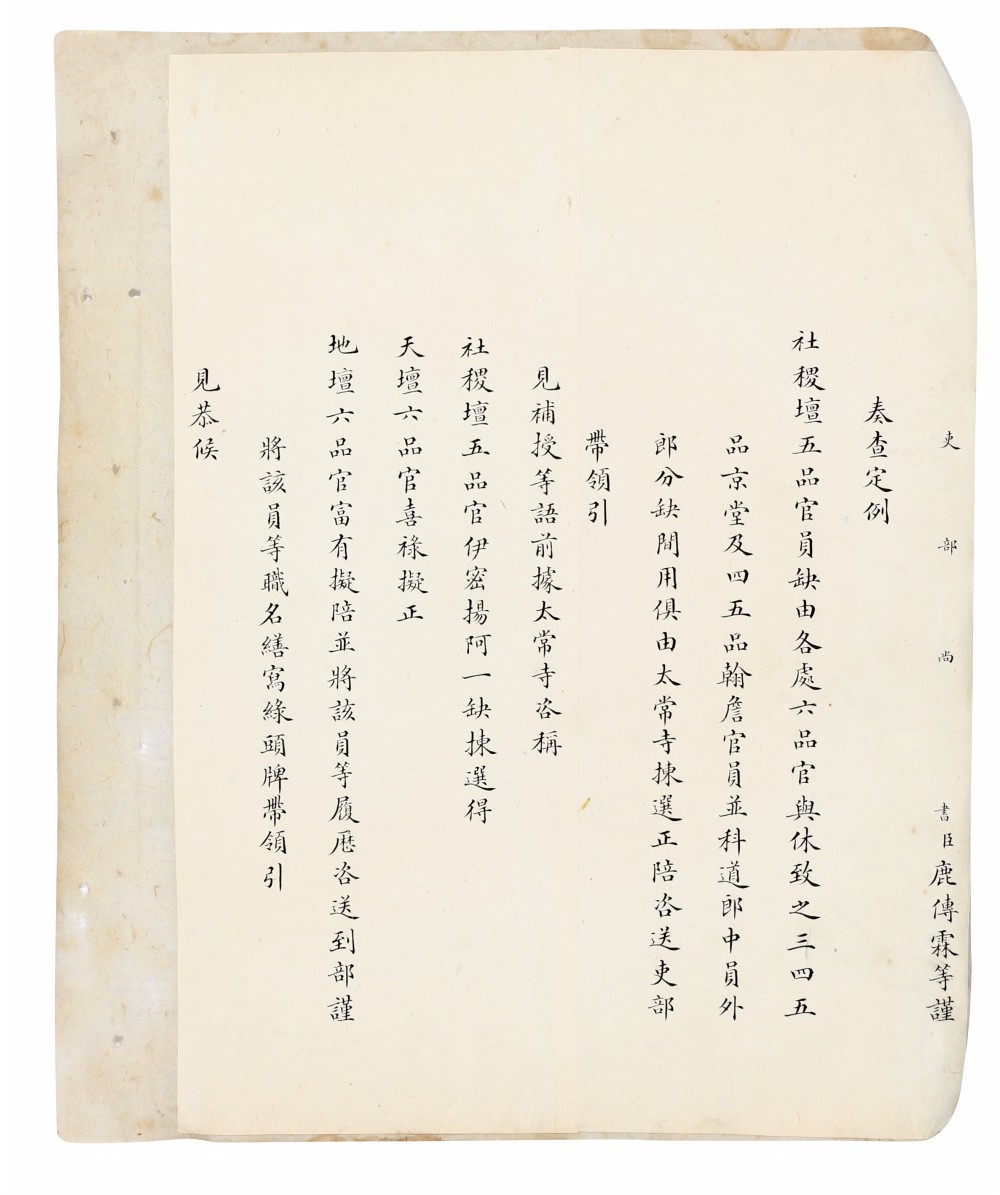 吏部尚書臣鹿傳霖等謹
奏查定例
社稷壇五品官員缺由各處六品官與休致之三四五
品京堂及四五品翰詹官員並科道郎中員外
郎分缺間用俱由太常寺揀選正陪咨送吏部
帶領引
見補授等語前據太常寺咨稱
社稷壇五品官伊密揚阿一缺揀選得
天壇六品官喜祿擬正
地壇六品官富有擬陪並將該員等履歷咨送到部謹
將該員等職名繕寫綠頭牌帶領引
見恭候